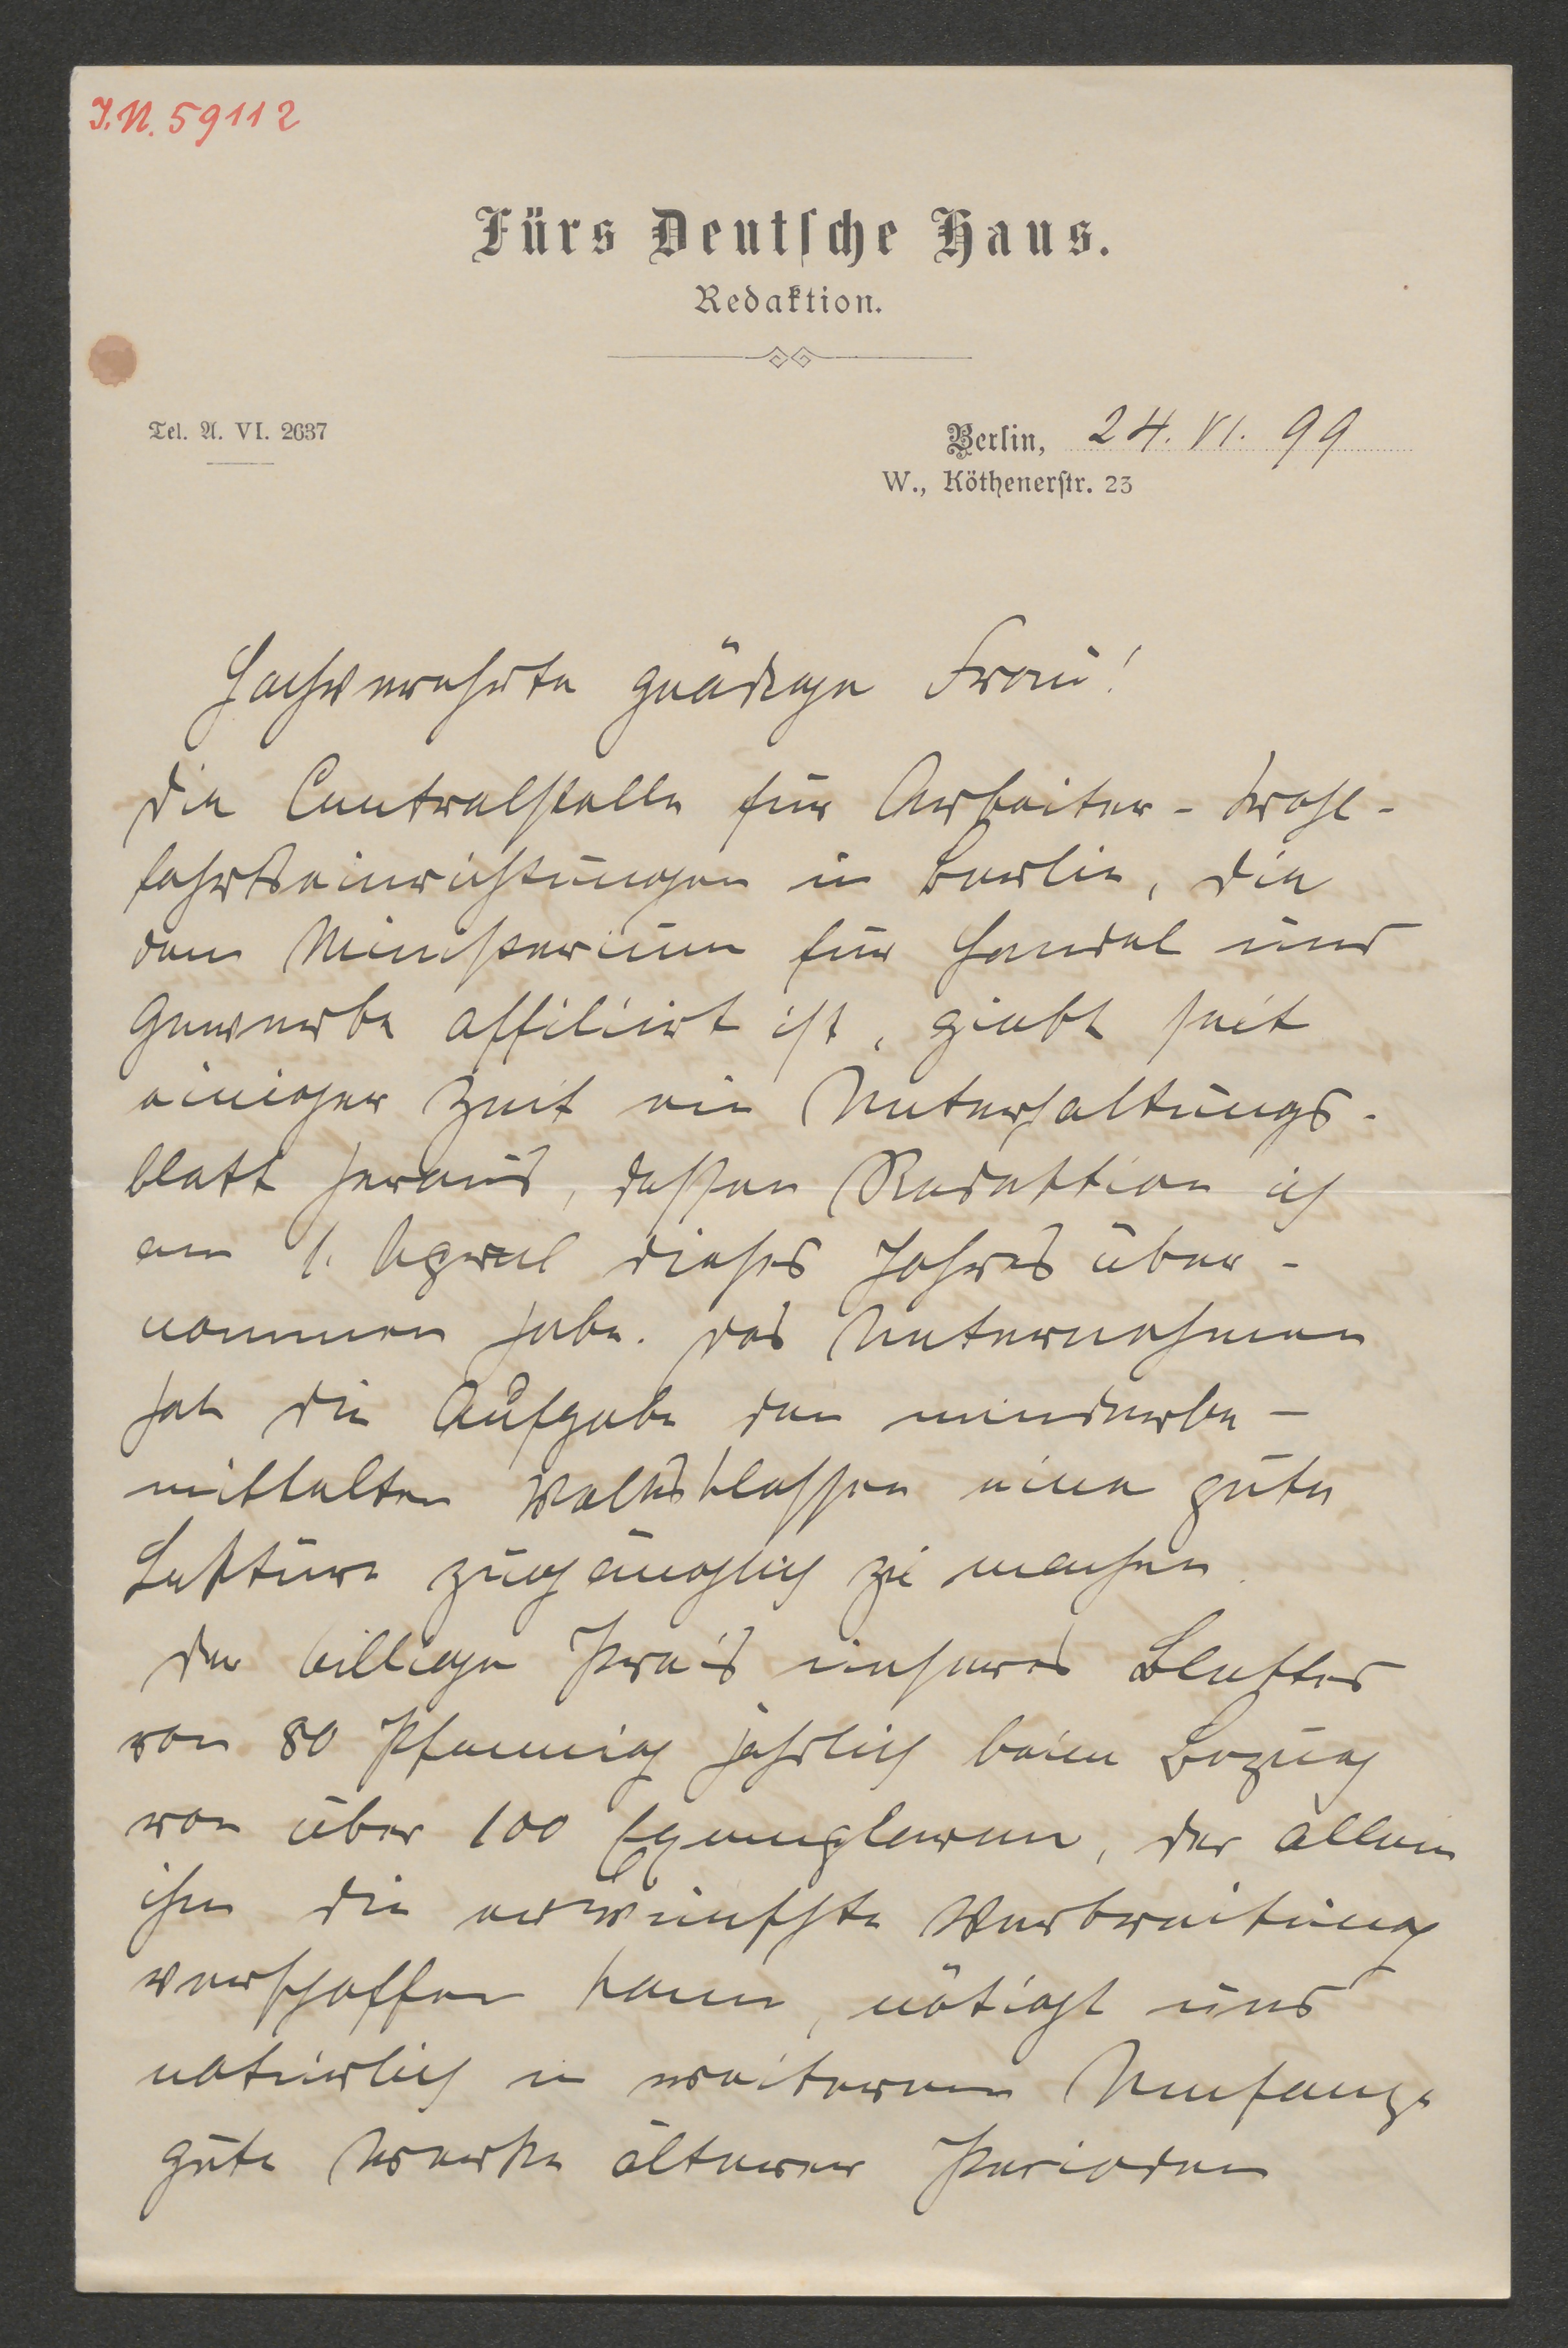 I.N. 59112
Fürs Deutsche Haus.
Redaktion.
Tel. A. VI. 2637
Berlin, 24. VI. 99
W., Köthenerstr. 23
Hochverehrte gnädige Frau!
die Centralstelle für Arbeiter-Wohl-
fahrtseinrichtungen in Berlin, die
dem Ministerium für Handel und
Gewerbe affiliirt ist, giebt seit
einiger Zeit ein Unterhaltungs-
blatt heraus, dessen Redaktion ich
am 1. April dieses Jahres über-
nommen habe. das Unternehmen
hat die Aufgabe den minderbe-
mittelten Volksklassen eine gute
Lektüre zugänglich zu machen.
der billige Preis unseres Blattes
von 80 Pfennig jährlich beim Bezug
von über 100 Exemplaren, der allein
ihm die erwünschte Verbreitung
verschaffen kann, nötigt uns
natürlich in weiterem Umfange
gute Werke älterer Perioden